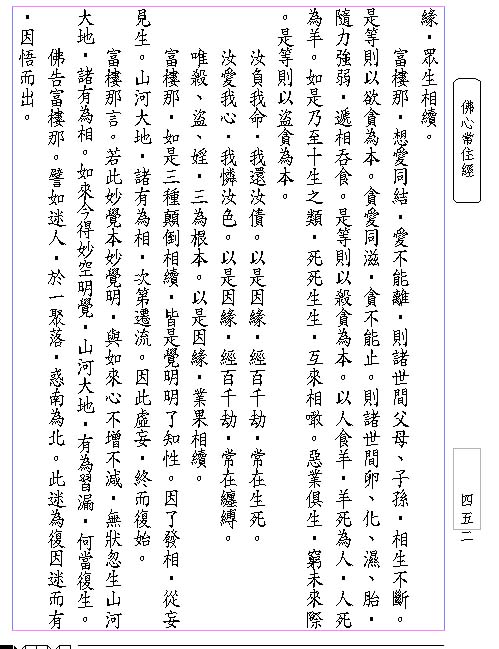 佛心常住經
四五二
緣．眾生相續。
富樓那．想愛同結．愛不能離．則諸世間父母、子孫．相生不斷。
是等則以欲貪為本。貪愛同滋．貪不能止。則諸世間卵、化、濕、胎．
隨力強弱．遞相吞食。是等則以殺貪為本。以人食羊．羊死為人．人死
為羊。如是乃至十生之類．死死生生．互來相噉。惡業俱生．窮未來際
。是等則以盜貪為本。
汝負我命．我還汝債。以是因緣．經百千劫．常在生死。
汝愛我心．我憐汝色。以是因緣．經百千劫．常在纏縛。
唯殺、盜、婬．三為根本。以是因緣．業果相續。
富樓那．如是三種顛倒相續．皆是覺明．明了知性。因了發相．從妄
見生。山河大地．諸有為相．次第遷流。因此虛妄．終而復始。
富樓那言。若此妙覺本妙覺明．與如來心不增不減．無狀忽生山河
大地．諸有為相。如來今得妙空明覺．山河大地．有為習漏．何當復生。
佛告富樓那。譬如迷人．於一聚落．惑南為北。此迷為復因迷而有
．因悟而出。